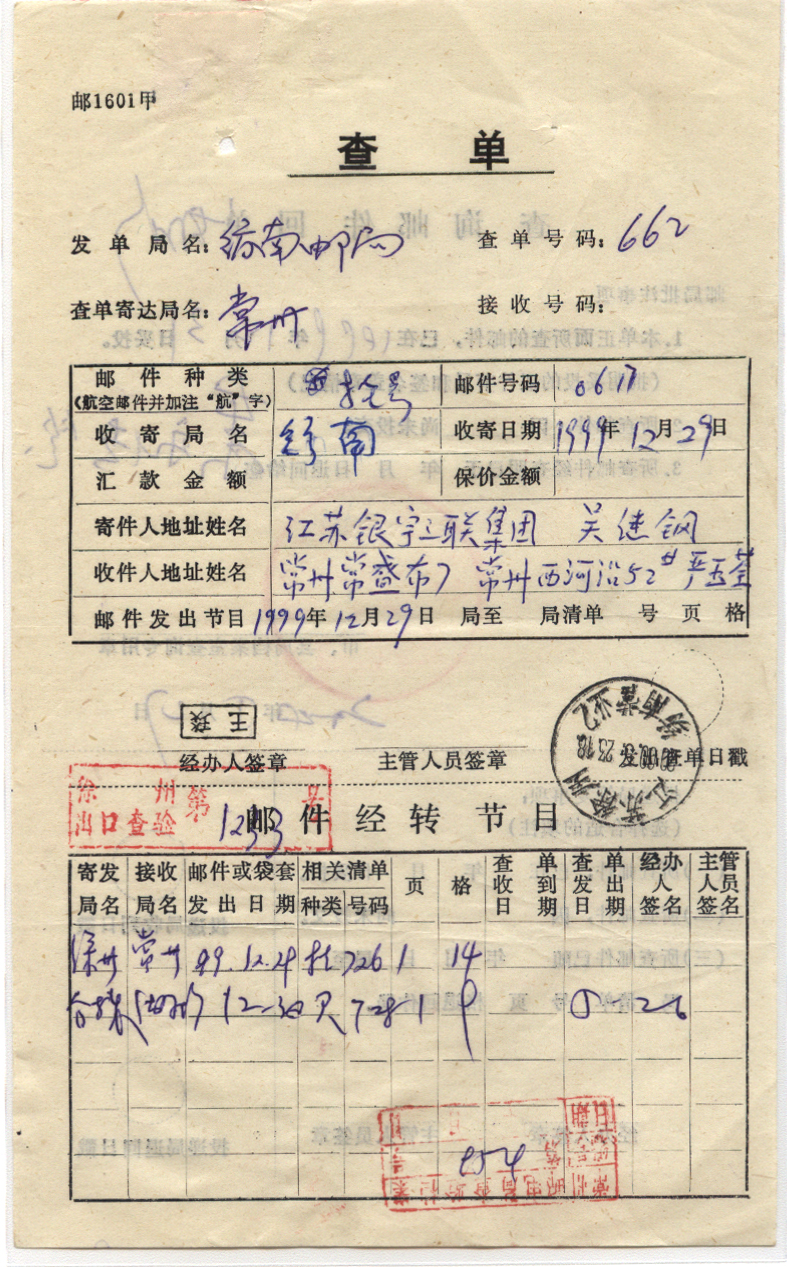 邮1601甲
查 单
发单局名：纺南邮局 查单号码：662
查单寄达局名：常州 接收号码：
邮件种类 挂号 邮件号码 0617
(航空邮件并加注“航”字)
收寄局名 南 收寄日期 1999年12月29日
汇款金额 保价金额
寄件人地址姓名 江苏银宇 联集团 吴继钢
收件人地址姓名 常州常盛布厂 常州西河沿52# 严玉
邮件发出节目 1999年12月29日 局至 局清单 号 页 格
王琰
经办人签章 主管人员签章 发出查单日戳
江苏徐州 纺南营业2
徐州 第 号
出口查验 1233
邮件经转节目
寄发局名 接收局名 邮件或袋套发出日期 相关清单种类 号码 页 格 查单收到日期 查单发出日期 经办人签名 主管人员签名
徐州 常州 99.12.29 挂 726 1 14
12-30 728 1 9 5-26
常州邮电局查验档案
254